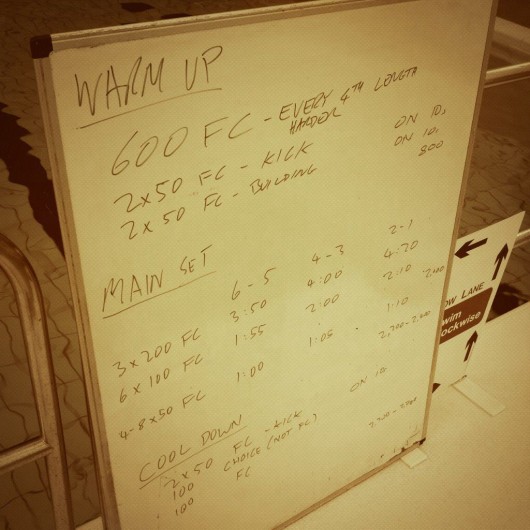 WARM UP
600 FC - EVERY 4TH LENGTH
HARDER
2x50 FC - KICK ON 10,
2x50 FC - BUILDING ON 10,
800
MAIN SET
6-5 4-3 2-1
3x200 FC 3:50 4:00 4:20
6x100 FC 1:55 2:00 2:10
4-8x50 FC 1:00 1:05 1:10
COOL DOWN
2x50 FC - KICK ON 10
100 CHOICE (NOT FC)
100 FC
OW LANE
wim
ockwise